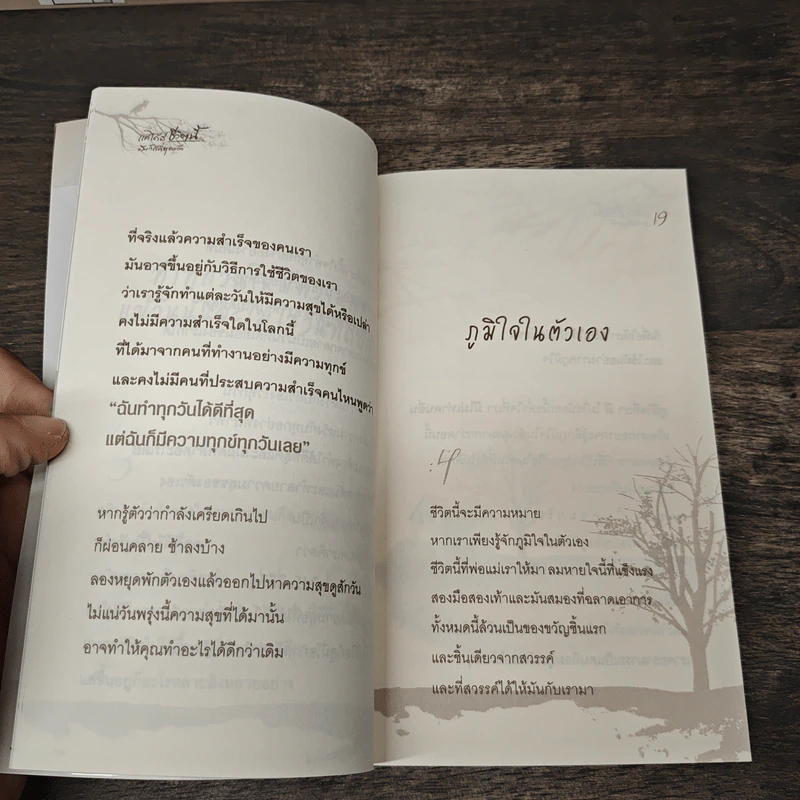 ชีวิตนี้
ที่จริงแล้วความสำเร็จของคนเรา
มันอาจขึ้นอยู่กับวิธีการใช้ชีวิตของเรา
ว่าเรารู้จักทำแต่ละวันให้มีความสุขได้หรือเปล่า
คงไม่มีความสำเร็จใดในโลกนี้
ที่ได้มาจากคนที่ทำงานอย่างมีความทุกข์
และคงไม่มีคนที่ประสบความสำเร็จคนไหนพูดว่า
“ฉันทำทุกวันได้ดีที่สุด
แต่ฉันก็มีความทุกข์ทุกวันเลย”
หากรู้ตัวว่ากำลังเครียดเกินไป
ก็ผ่อนคลาย ช้าลงบ้าง
ลองหยุดพักตัวเองแล้วออกไปหาความสุขดูสักวัน
ไม่แน่วันพรุ่งนี้ความสุขที่ได้มานั้น
อาจทำให้คุณทำอะไรได้ดีกว่าเดิม
19
ภูมิใจในตัวเอง
ชีวิตนี้จะมีความหมาย
หากเราเพียงรู้จักภูมิใจในตัวเอง
ชีวิตนี้ที่พ่อแม่เราให้มา ลมหายใจนี้ที่แข็งแรง
สองมือสองเท้าและมันสมองที่ฉลาดเอาการ
ทั้งหมดนี้ล้วนเป็นของขวัญชิ้นแรก
และชิ้นเดียวจากสวรรค์
และที่สวรรค์ได้ให้มันกับเรามา